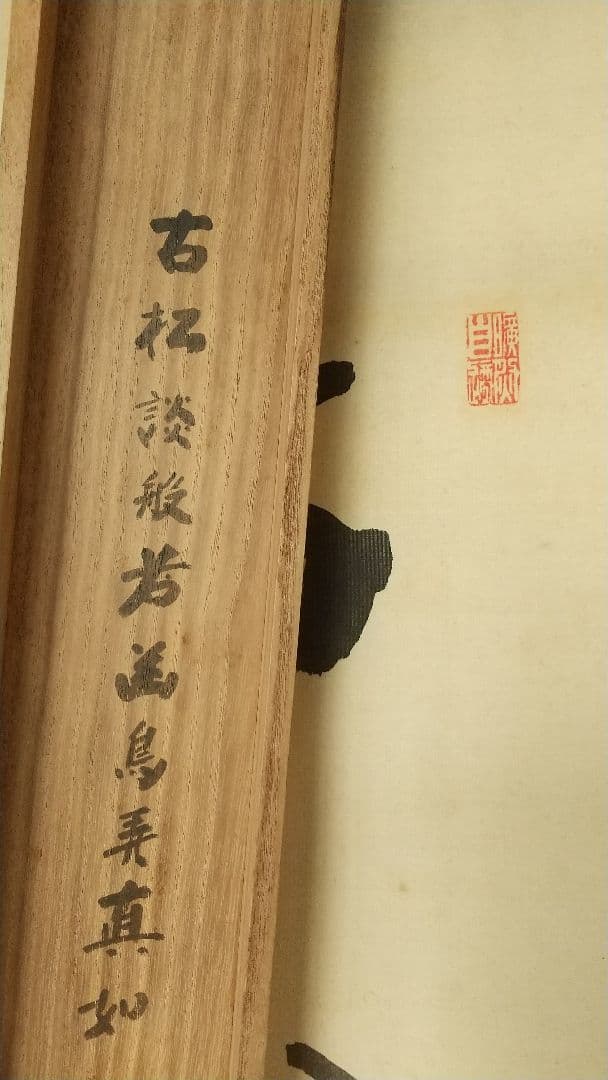 古松談般若幽鳥弄真如